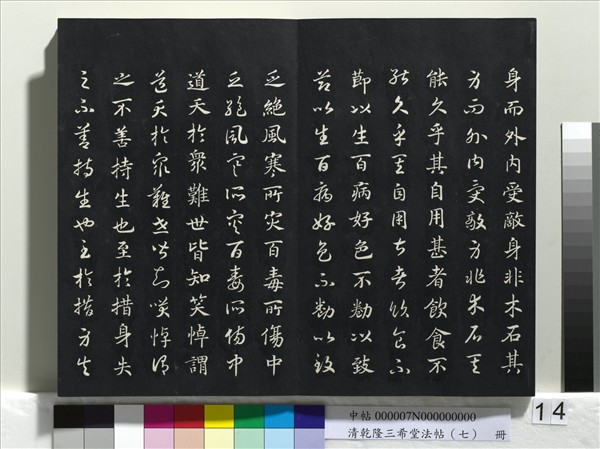 身而外内受敵身非木石其
身而外内受敵身非木石其
能久乎其自用甚者飲食不
能久乎其自用甚者飲食不
節以生百病好色不勌以致
節以生百病好色不勌以致
乏絶風寒所灾百毒所傷中
乏絶風寒所灾百毒所傷中
道夭於衆難世皆知笑悼謂
道夭於衆難世皆知笑悼謂
之不善持生也至於措身失
之不善持生也至於措身失
中帖 000007N000000000
清乾隆三希堂法帖（七） 冊
14